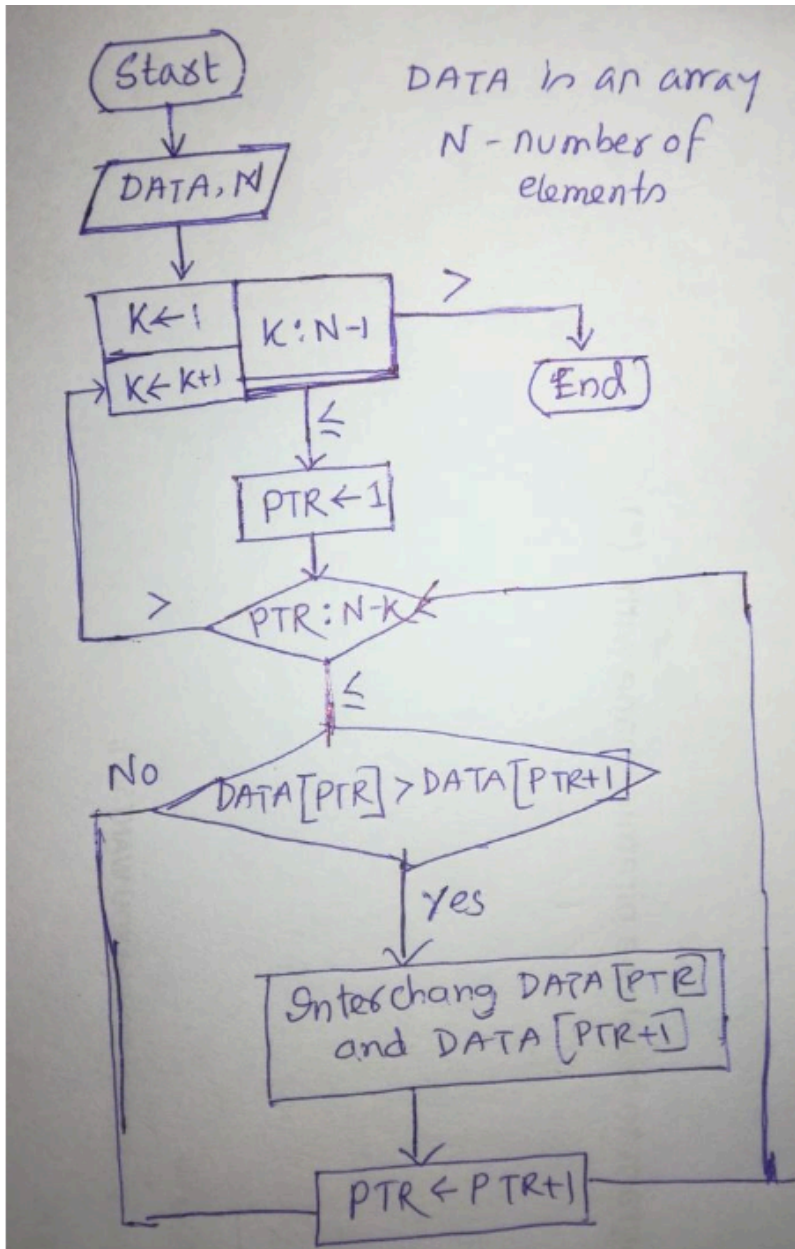 Start
DATA in an array
N - number of
elements
DATA, N
K ← 1
K : N-1
>
K ← K+1
End
≤
PTR ← 1
>
PTR : N-K
≤
No
DATA[PTR] > DATA[PTR+1]
Yes
Interchang DATA [PTR]
and DATA [PTR+1]
PTR ← PTR+1